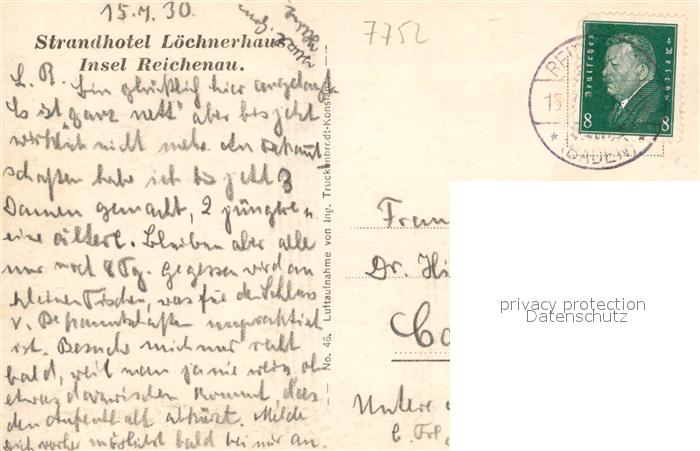 15.7.30.
7752
Strandhotel Löchnerhaus
Insel Reichenau.
L. R. Bin glücklich hier angelangt.
Es ist "ganz nett" aber bis jetzt
wirklich nicht mehr. An Bekannt-
schaften habe ich bis jetzt 3
Damen gemacht, 2 jüngere u.
eine ältere. Bleiben aber alle
nur noch 8 Tg. Gegessen wird an
kleinen Tischen, was für den Schluss
v. Bekanntschaften unpraktisch
ist. Besuche mich nur recht
bald, weil man ja nie weiss ob
etwas dazwischen kommt, das
den Aufenthalt abkürzt. Melde
Dich vorher möglichst bald bei mir an.
No. 46. Luftaufnahme von Ing. Truckenbrodt-Konstanz
Deutsches Reich
8 8
REI
15
(BADEN)
Frau
Dr. Hi
Ca
Untere
b. Frl.
privacy protection
Datenschutz